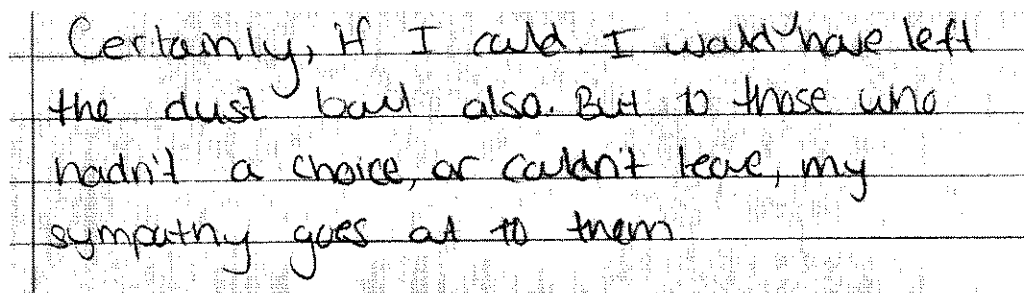 Certainly, if I could. I would have left
the dust bowl also. But to those who
hadn't a choice, or couldn't leave, my
sympathy goes out to them